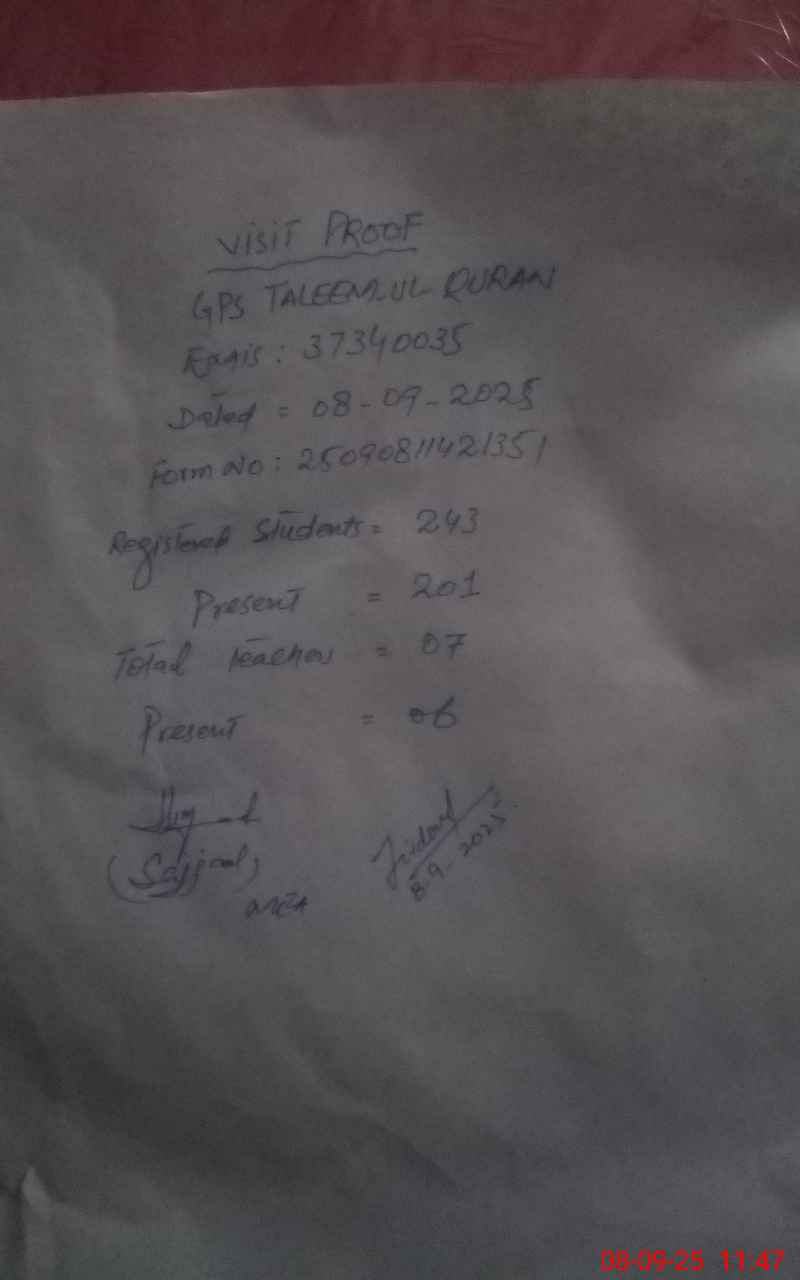 VISIT PROOF
GPS TALEEM.UL QURAN
Emis: 37340035
Dated = 08-09-2025
Form No: 25090811421351
Registered Students = 243
Present = 201
Total teachers = 07
Present = 06
(Sajjad)
8-9-2025
08-09-25 11:47